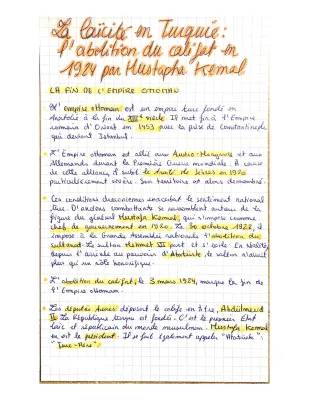 La laïcité en Turquie:
l'abolition du califat en
1924 par Mustapha Kemal
LA FIN DE L'EMPIRE OTTOMAN
L'empire ottoman est un empire turc fondé en
Anatolie à la fin du XIIIe siècle. Il met fin à l'Empire
romain d'Orient en 1453 avec la prise de Constantinople
qui devient Istanbul.
L'Empire ottoman est allié aux Austro-Hongrois et aux
Allemands durant la Première Guerre mondiale. A cause
de cette alliance, il subit le traité de Sèvres en 1920
particulièrement sévère. Son territoire est alors démembré.
Ces conditions draconiennes exacerbent le sentiment national
turc. D'anciens combattants se rassemblent autour de la
figure du général Mustafa Kemal, qui s'impose comme
chef de gouvernement en 1920. Le 30 octobre 1922, il
impose à la Grande Assemblée nationale l'abolition du
sultanat. Le sultan Mehmet VI part et s'exile. En réalité,
depuis l'arrivée au pouvoir d'Atatürk, le sultan n'avait
plus qu'un rôle honorifique.
L'abolition du califat, le 3 mars 1924, marque la fin de
l'Empire ottoman.
Les députés turcs déposent le calife en titre, Abdülmecid
II. La République turque est fondée. C'est le premier État
laïc et républicain du monde musulman. Mustafa Kemal
en est le président. Il se fait également appeler "Atatürk":
"Turc-Père".